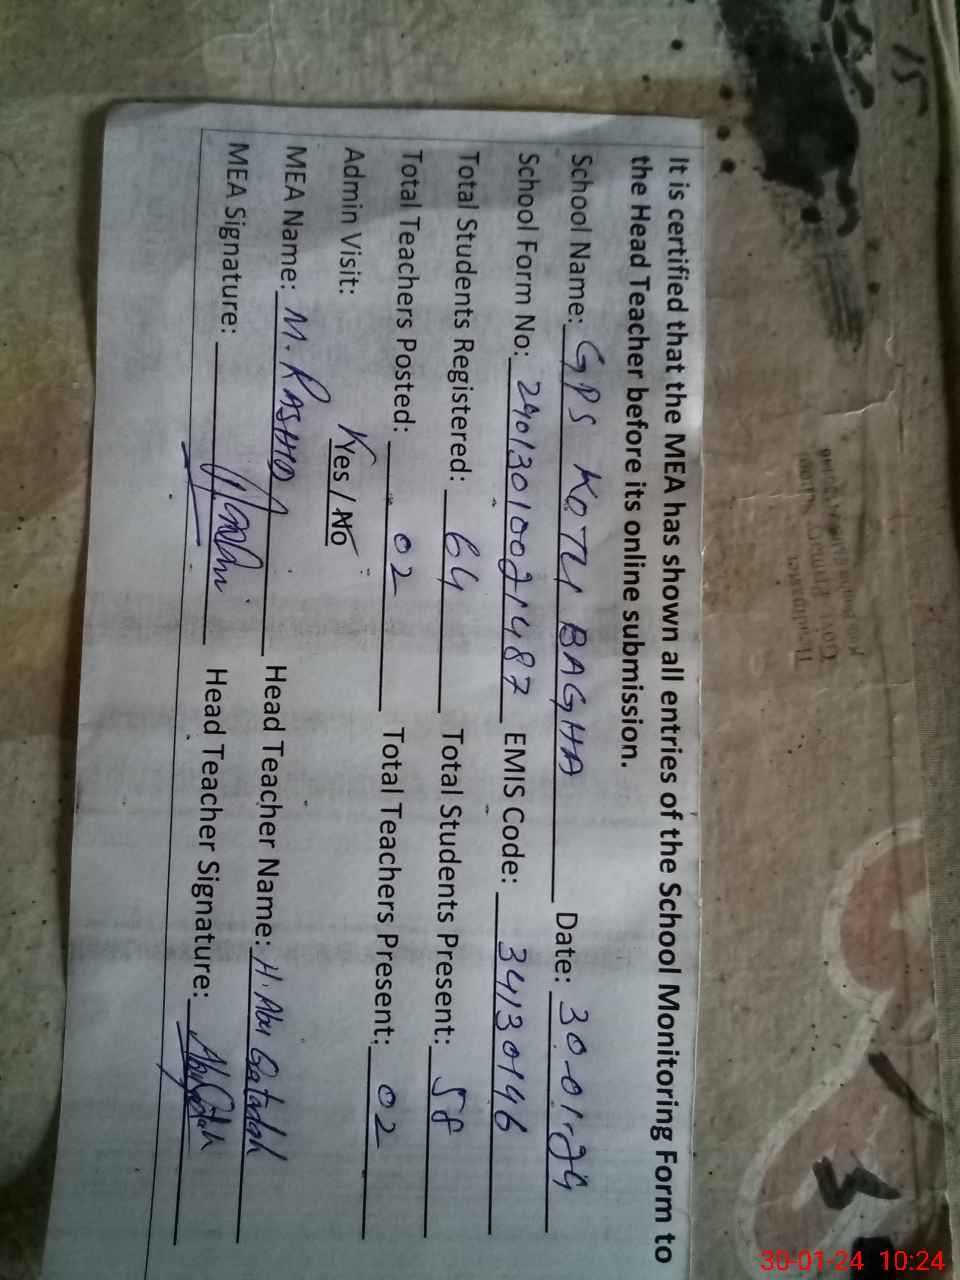 It is certified that the MEA has shown all entries of the School Monitoring Form to
the Head Teacher before its online submission.
School Name: GPS KOTLI BAGHA Date: 30-01-24
School Form No: 24013010021487 EMIS Code: 34130146
Total Students Registered: 64 Total Students Present: 58
Total Teachers Posted: 02 Total Teachers Present: 02
Admin Visit: Yes / No
MEA Name: M. RASHID Head Teacher Name: H. Abu
MEA Signature: Head Teacher Signature:
15
30-01-24 10:24